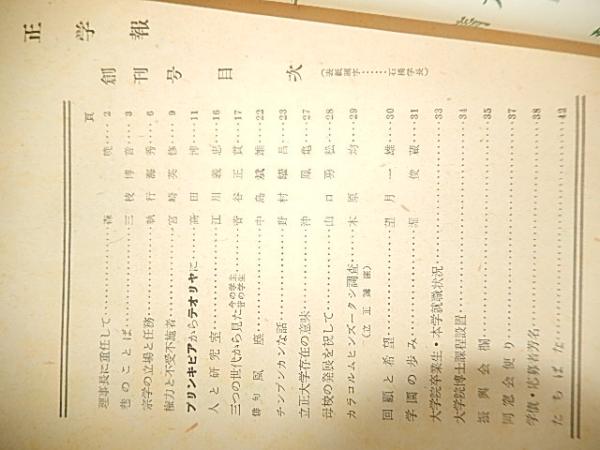 正学報
創刊号目次
(表紙題字……石橋学長)
頁
理事長に重任して………森 暁……2
巻のことば………三枝博音……3
宗学の立場と任務………執行海秀……6
権力と不受不施者………宮崎英修……9
プリンキピアからテオリヤに……高田 博……11
人と研究室………江川義忠……16
三つの世代から見た 今の学生 昔の学生………菅谷正貫……17
俳句 風塵………中島斌雄……22
チンプンカンな話………野村耀昌……23
立正大学存在の意味………沖 鳳亀……27
母校の発展を祝して………山口男松……28
カラコルムヒンズークシ調査………木原 均……29
(立正護術)
回顧と希望………望月一雄……30
学園の歩み………浬 俊蔵……31
大学院卒業生・本学就職状況………33
大学院博士課程設置………34
振興会欄………35
同窓会便り………37
学債・応募者芳名………38
たちばな………42